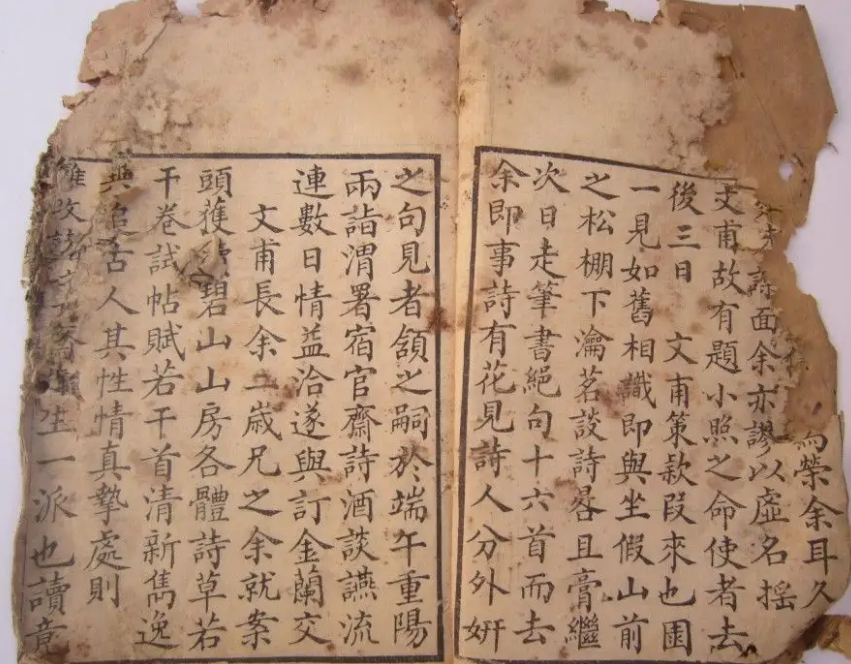 而榮余耳久
詩面余亦謬以虛名搖
文甫故有題小照之命使者去
後三日　文甫策欵段來也園
一見如舊相識即與坐假山前
之松棚下瀹茗談詩晷且膏繼
次日走筆書絕句十六首而去
余即事詩有花見詩人分外妍
之句見者頷之嗣於端午重陽
兩詣渭署宿官齋詩酒談讌流
連數日情益洽遂與訂金蘭交
文甫長余二歲兄之余就案
頭獲讀碧山山房各體詩草若
干卷試帖賦若干首清新雋逸
與追古人其性情真摯處則
生一派也讀竟